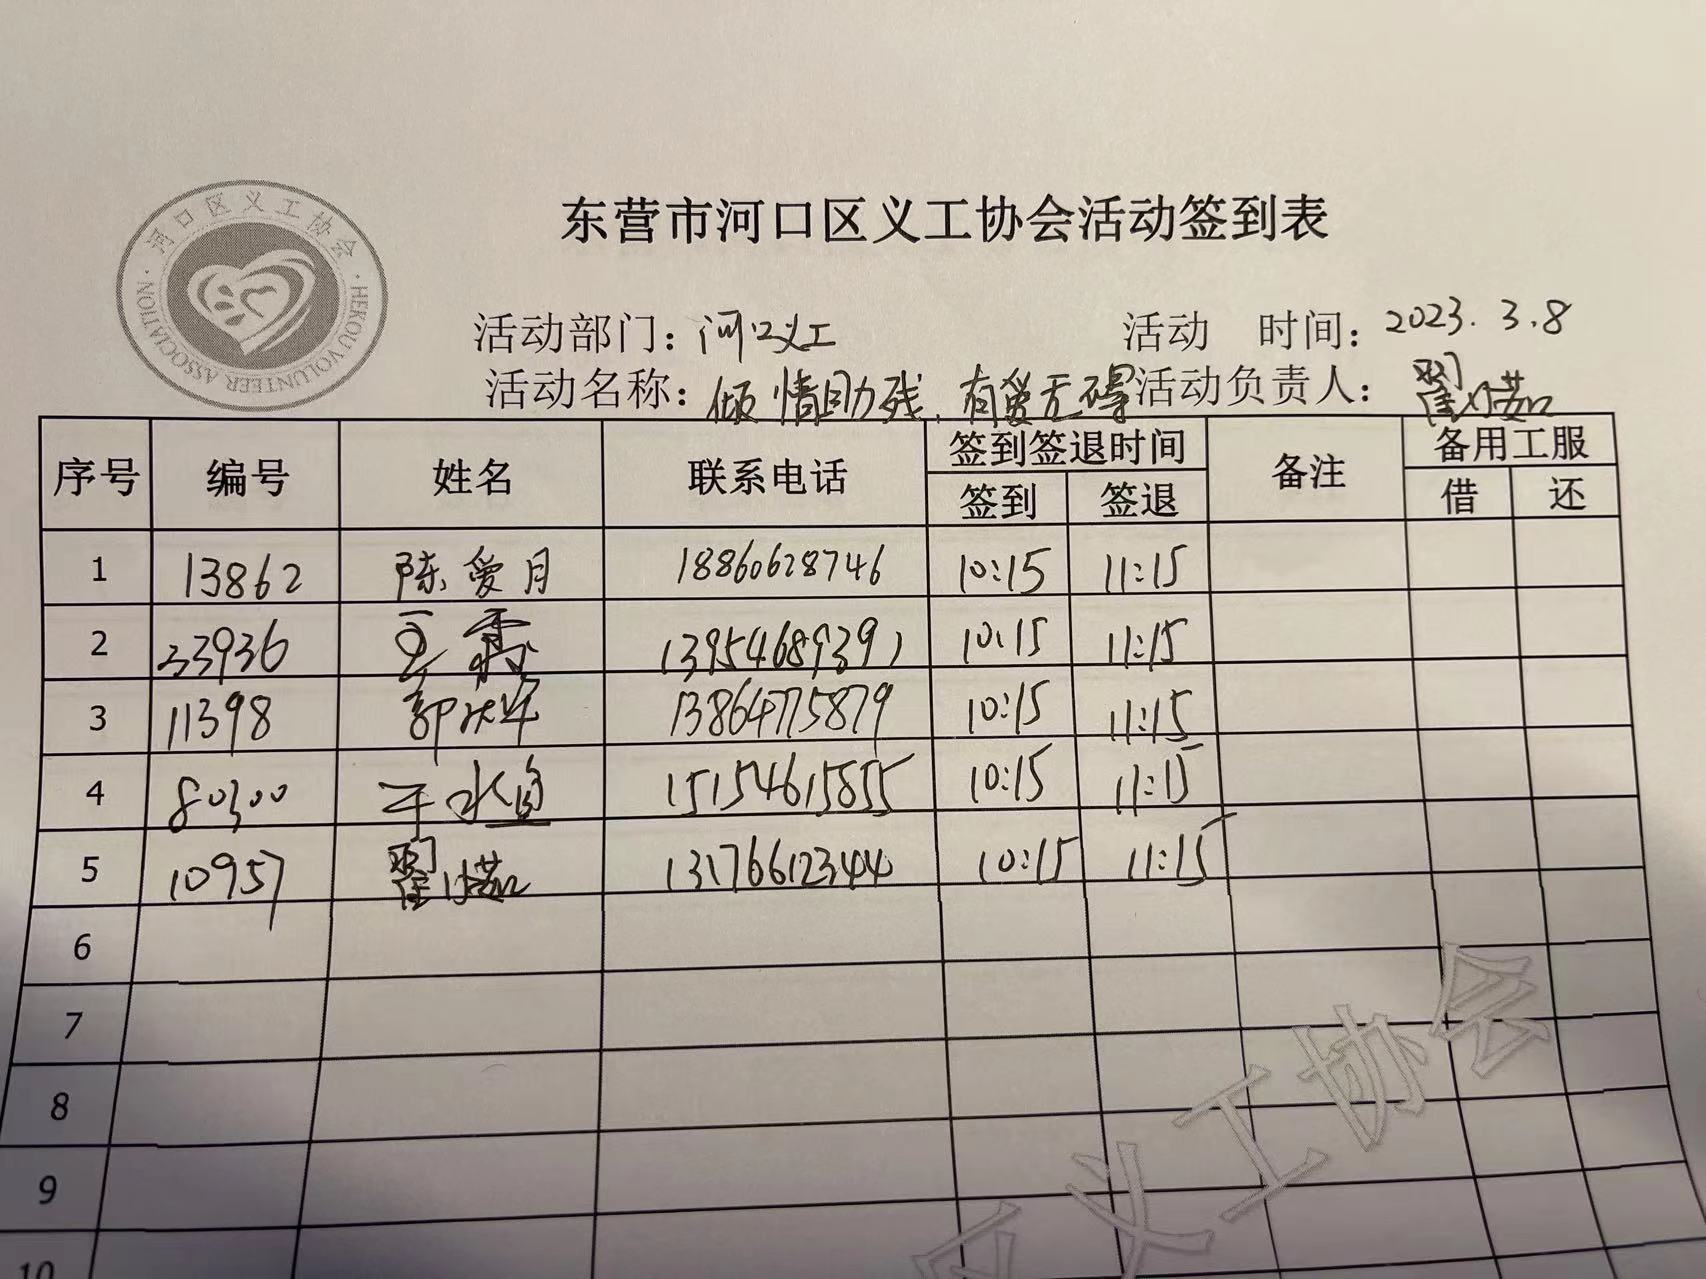 河口区义工协会
HEKOU VOLUNTEER ASSOCIATION
东营市河口区义工协会活动签到表
活动部门：河口义工 活动 时间：2023.3.8
活动名称：倾情助残,有爱无碍 活动负责人：翟
序号 编号 姓名 联系电话 签到签退时间 备注 备用工服
签到 签退 借 还
1 13862 陈爱月 18860628746 10:15 11:15
2 33936 13954689391 10:15 11:15
3 11398 郭 13864775879 10:15 11:15
4 80300 15154615855 10:15 11:15
5 10957 翟 13176612344 10:15 11:15
6
7
8
9
10
义工协会